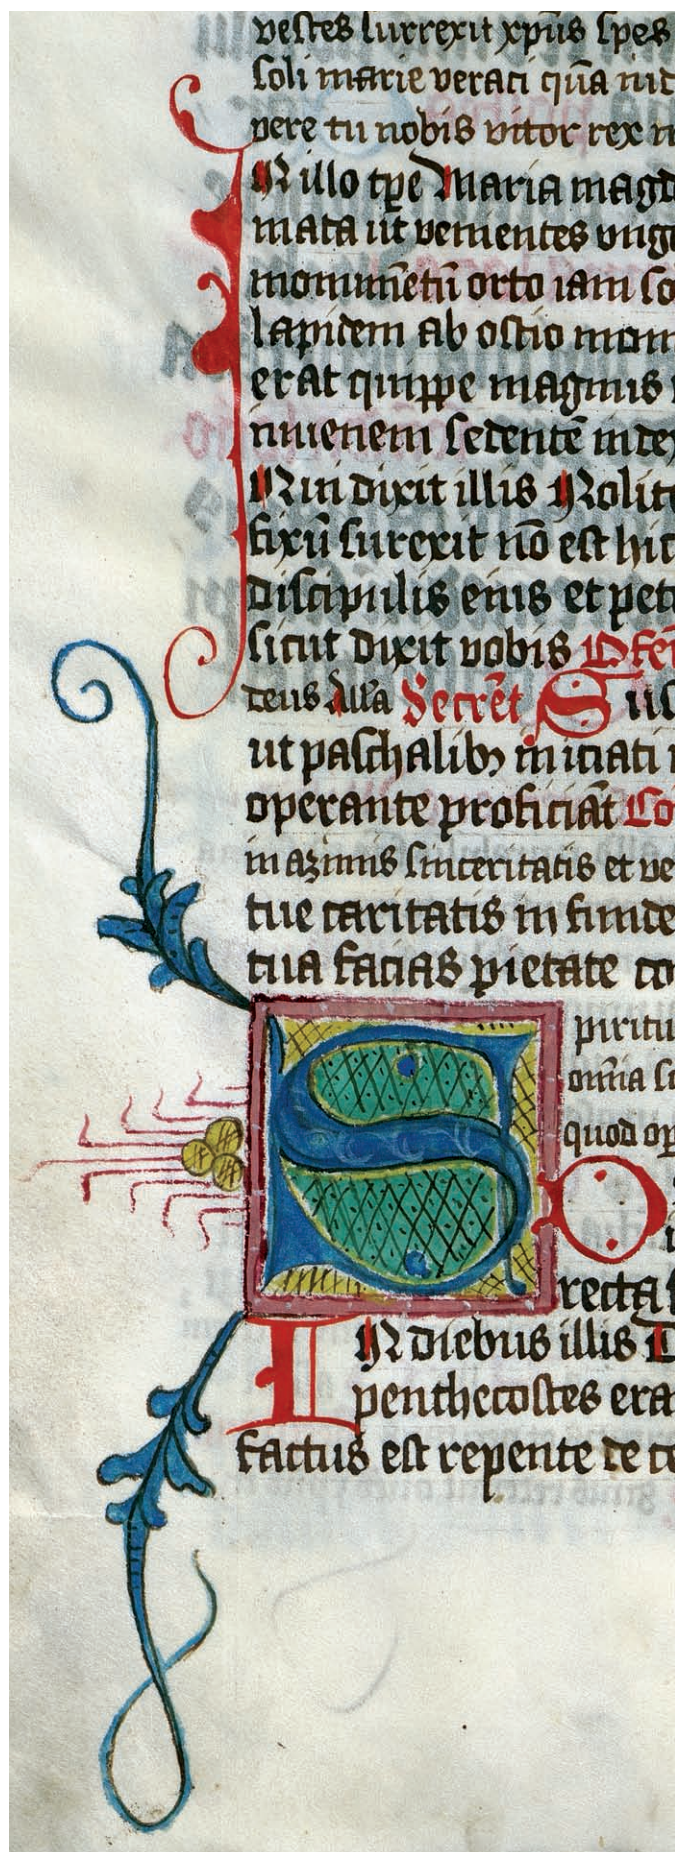 vestes surrexit xpūs spes
soli marie veraci qūa iud
vere tu nobis victor rex m
IN illo tp̄e Maria magd
mata ut venientes unge
monumētū orto iam so
lapidem ab ostio monu
erat quippe magnus
iuuenem sedentē in dex
Qui dixit illis Nolite
fixū surexit nō est hic
discipulis eius et pet
sicut dixit vobis Offēr
deus Allā Secrēt Sus
ut paschalibꝫ iniciati
operante proficiāt Co
in azimis sinceritatis et ve
tue caritatis in funde
tua facias pietate co
Spiritu
omnia
quod op
D
recta
IN diebus illis
penthecostes era
factus est repente de ce